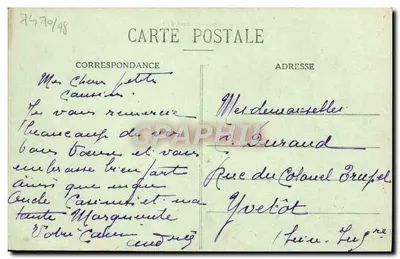 7470/98
CARTE POSTALE
CORRESPONDANCE
ADRESSE
Mes chers petits
cousins.
Je vous remercie
beaucoup de vos
bons vœux et vous
embrasse bien fort
ainsi que mon
oncle Casimir et ma
tante Marguerite
Votre cousin
André
Mesdemoiselles
Durand
Rue du Colonel Trupel
Yvetôt
(Seine-Infre